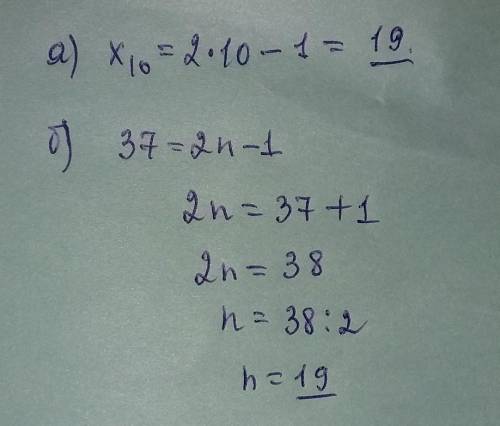 а) x₁₀ = 2·10 − 1 = 19.
б) 37 = 2n − 1
2n = 37 + 1
2n = 38
n = 38 : 2
n = 19